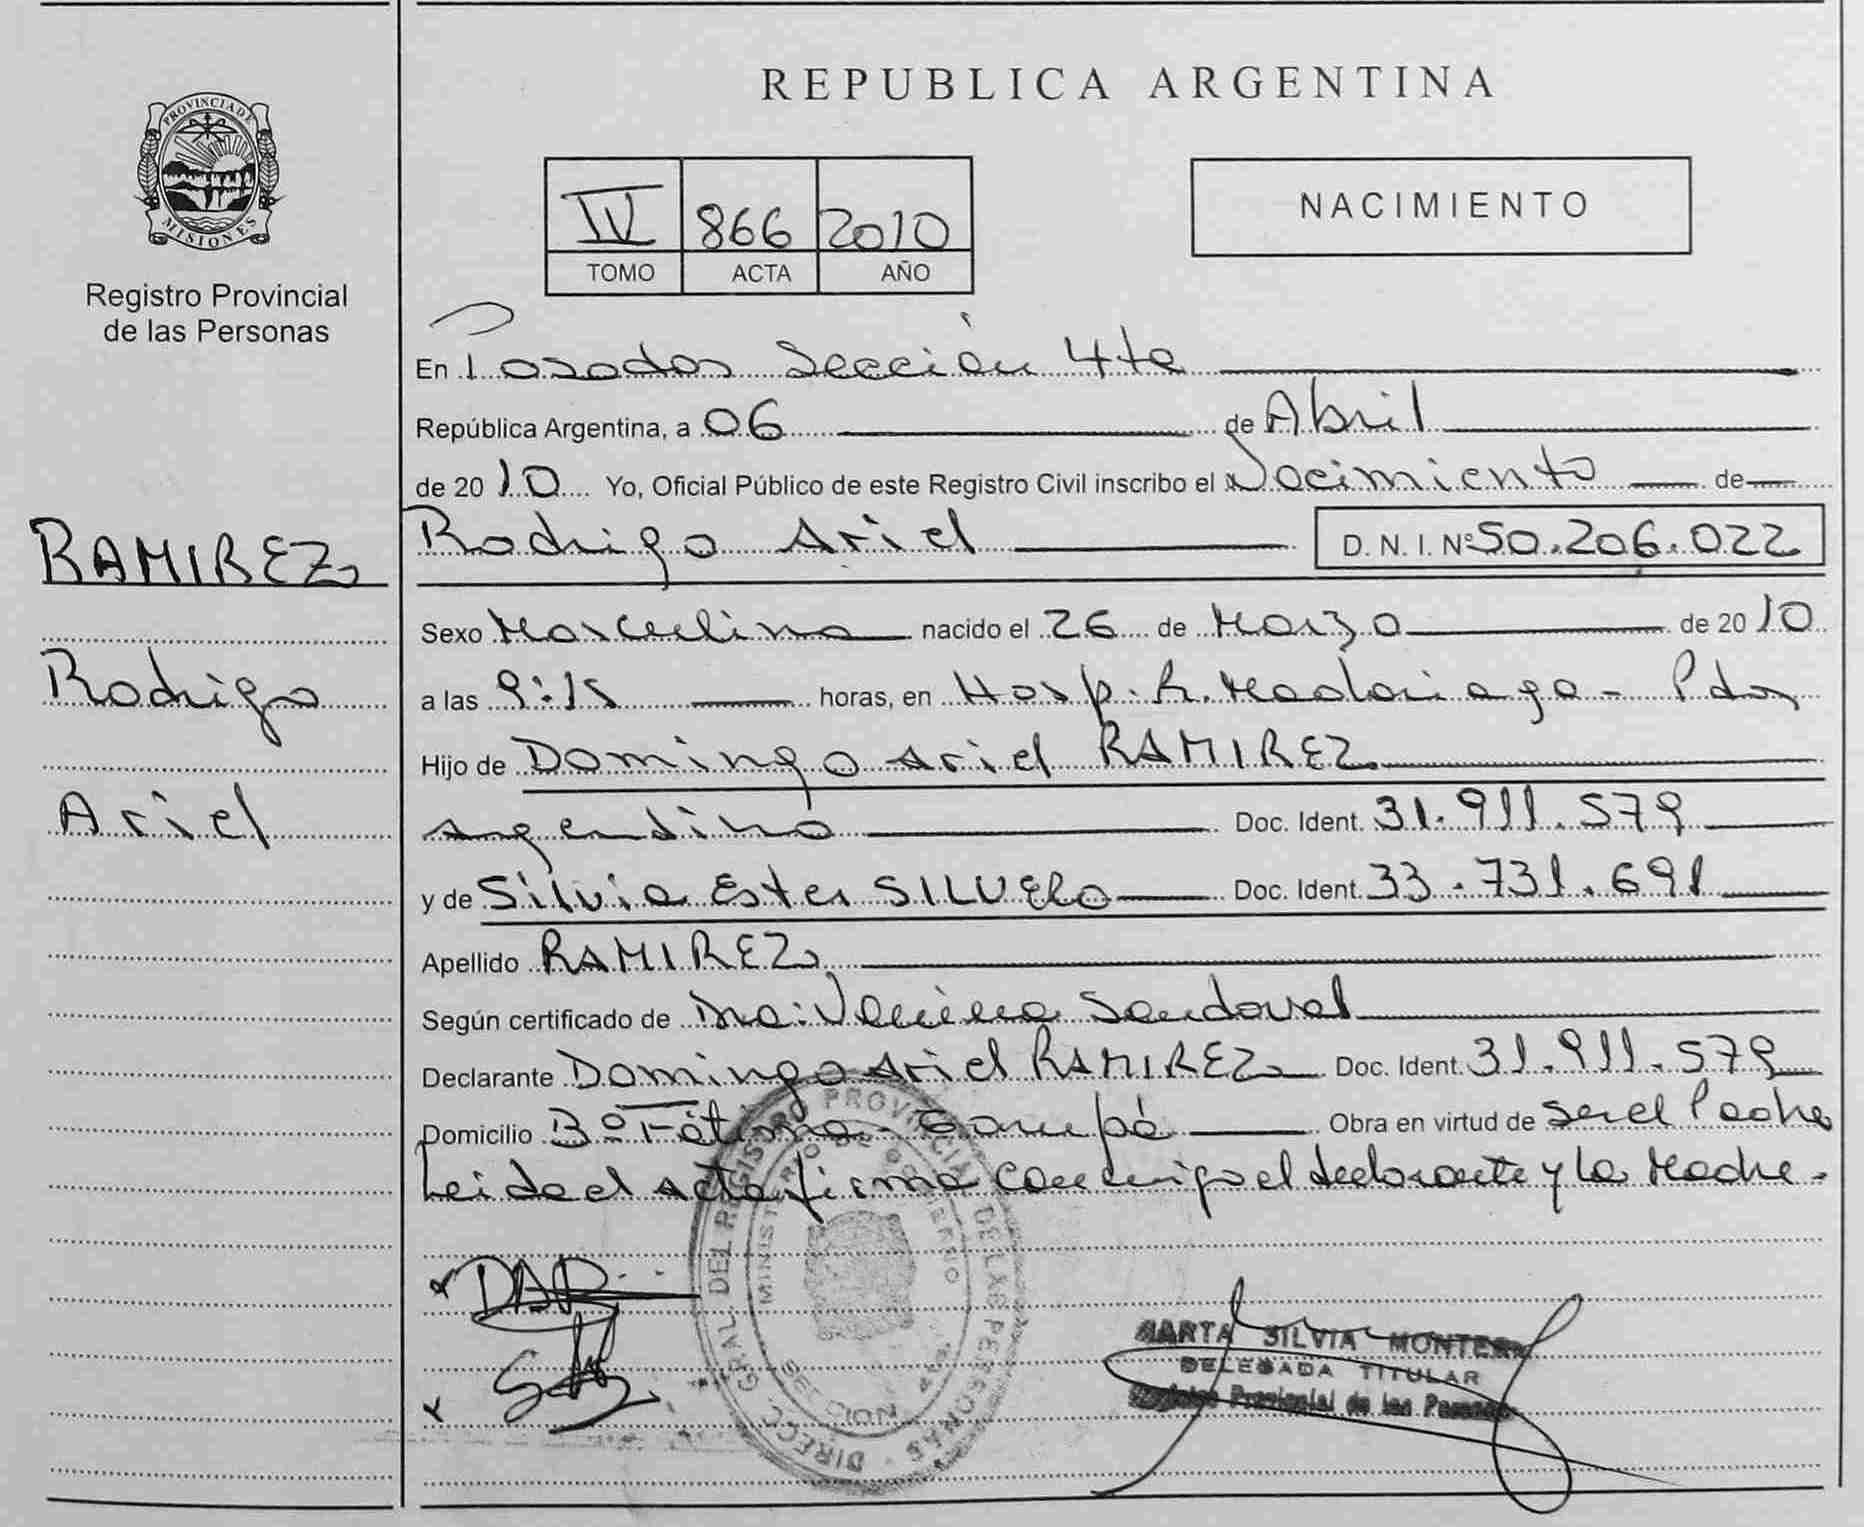 PROVINCIA DE
MISIONES
Registro Provincial
de las Personas
RAMIREZ
Rodrigo
Ariel
REPUBLICA ARGENTINA
IV 866 2010
TOMO ACTA AÑO
NACIMIENTO
En Posadas Sección 4ta
República Argentina, a 06 de Abril
de 2010 Yo, Oficial Público de este Registro Civil inscribo el Nacimiento de
Rodrigo Ariel D.N.I. Nº 50.206.022
Sexo Masculino nacido el 26 de Marzo de 2010
a las 9:15 horas, en Hosp. R. Madariaga - Pdas
Hijo de Domingo Ariel RAMIREZ
Argentino Doc. Ident. 31.911.579
y de Silvia Ester SILVERO Doc. Ident. 33.731.691
Apellido RAMIREZ
Según certificado de Dra: Sandoval
Declarante Domingo Ariel RAMIREZ Doc. Ident. 31.911.579
Domicilio Bº Fátima - Garupá Obra en virtud de ser el Padre
Leida el acta firma conmigo el declarante y la Madre.
DIREC. GRAL. DEL REGISTRO PROVINCIAL DE LAS PERSONAS
MINISTERIO DE GOBIERNO
MARTA SILVIA
DELEGADA TITULAR
Registro Provincial de las Personas